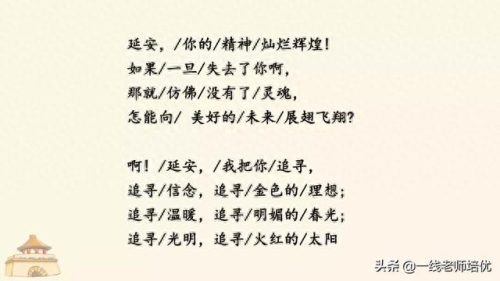 延安，/你的/精神/灿烂辉煌！
如果/一旦/失去了/你啊，
那就/仿佛/没有了/灵魂，
怎能向/ 美好的/未来/展翅飞翔？
啊！/延安，/我把你/追寻，
追寻/信念，追寻/金色的/理想；
追寻/温暖，追寻/明媚的/春光；
追寻/光明，追寻/火红的/太阳
头条 @一线老师培优